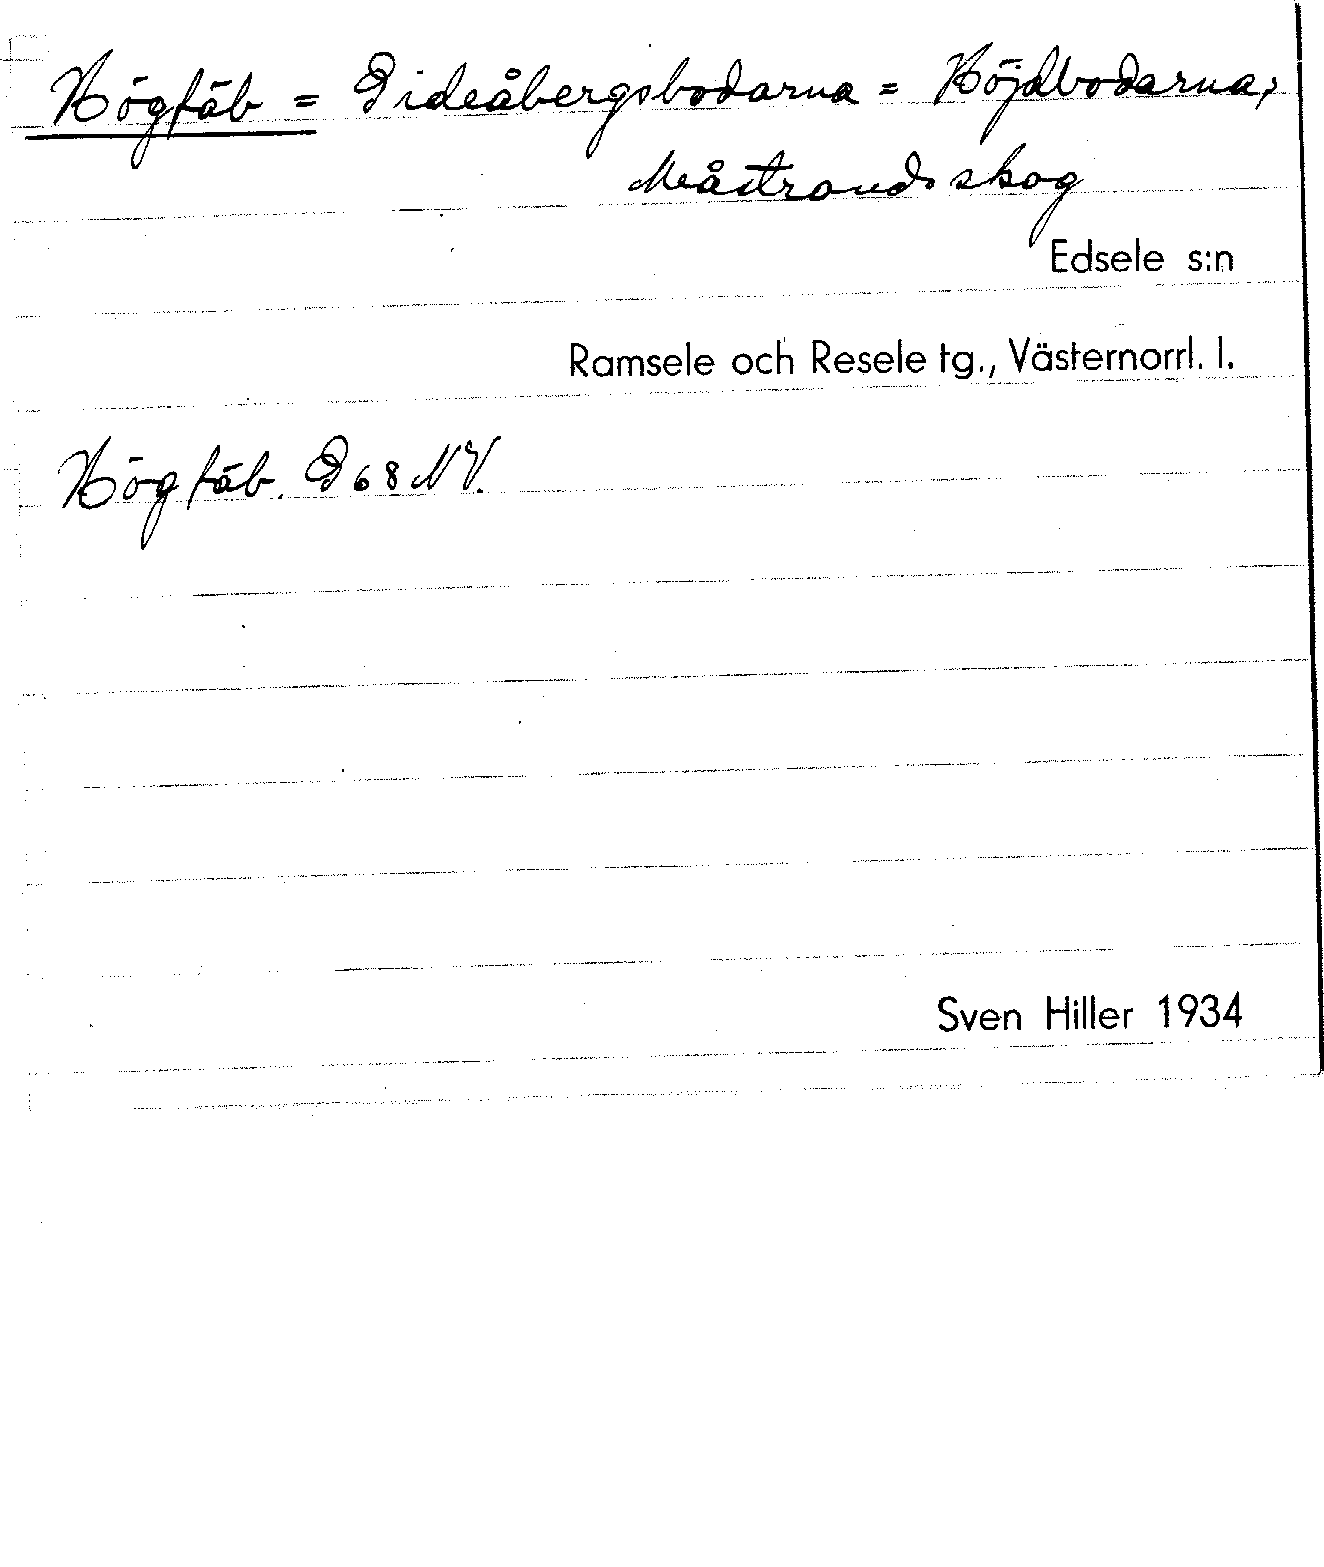 Högfäb = Gideåbergsbodarna = Höjdbodarna,
Måstrands skog
Edsele s:n
Ramsele och Resele tg., Västernorrl. l.
Högfäb. G68 NV.
Sven Hiller 1934